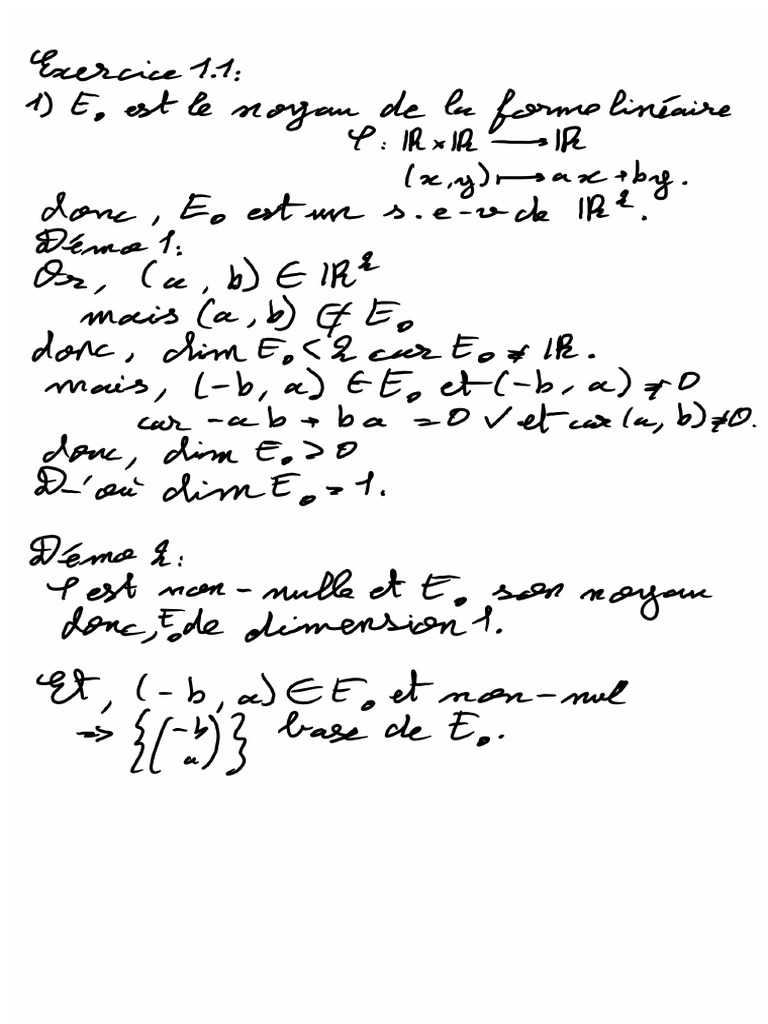 Exercice 1.1:
1) E₀ est le noyau de la forme linéaire
φ: ℝ×ℝ ⟶ ℝ
(x,y) ⟼ ax+by.
donc, E₀ est un s.e-v de ℝ².
Démo 1:
Or, (a, b) ∈ ℝ²
mais (a, b) ∉ E₀
donc, dim E₀ < 2 car E₀ ≠ ℝ.
mais, (-b, a) ∈ E₀ et (-b, a) ≠ 0
car -ab + ba = 0 ✓ et car (a, b) ≠ 0.
donc, dim E₀ > 0
D-'où dim E₀ = 1.
Démo 2:
φ est non-nulle et E₀ son noyau
donc, E₀ de dimension 1.
Et, (-b, a) ∈ E₀ et non-nul
⇒ {(-b
a)} base de E₀.